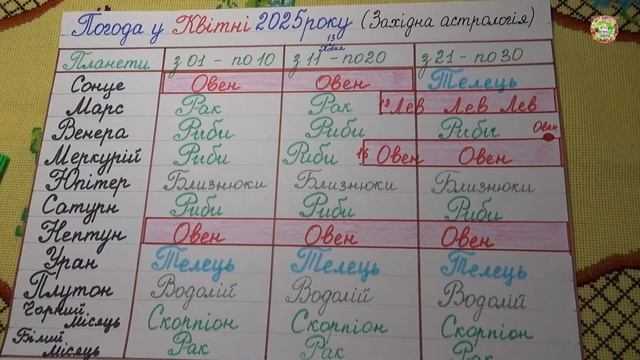 Погода у Квітні 2025 року (Західна астрологія)
Планети з 01 - по 10 з 11 - по 20 з 21 - по 30
13
Сонце Овен Овен Телець
Марс Рак Рак 18 Лев Лев Лев
Венера Риби Риби Риби Овен
Меркурій Риби Риби 16 Овен Овен
Юпітер Близнюки Близнюки Близнюки
Сатурн Риби Риби Риби
Нептун Овен Овен Овен
Уран Телець Телець Телець
Плутон Водолій Водолій Водолій
Чорний Місяць Скорпіон Скорпіон Скорпіон
Білий Місяць Рак Рак Рак